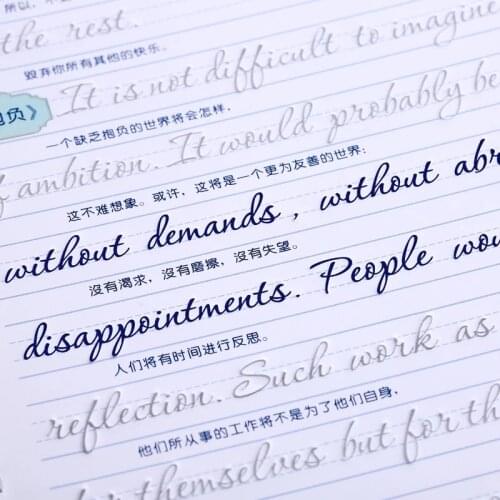 the rest.
毁弃你所有其他的快乐。
It is not difficult to imagine
负》
一个缺乏抱负的世界将会怎样,
of ambition. It would probably be
这不难想象。或许，这将是一个更为友善的世界:
without demands, without abr
沒有渴求，沒有磨擦，沒有失望。
disappointments. People wou
人们将有时间进行反思。
reflection. Such work as
他们所从事的工作将不是为了他们自身,
themselves but for th